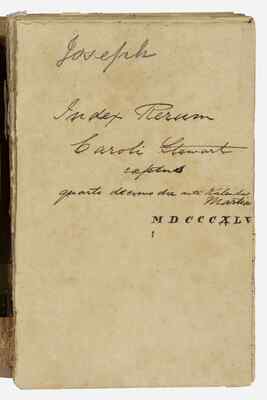 Joseph
Index Rerum
Caroli Stewart
captus
quarto decimo die ante Kalendas
Martias
MDCCCXLV